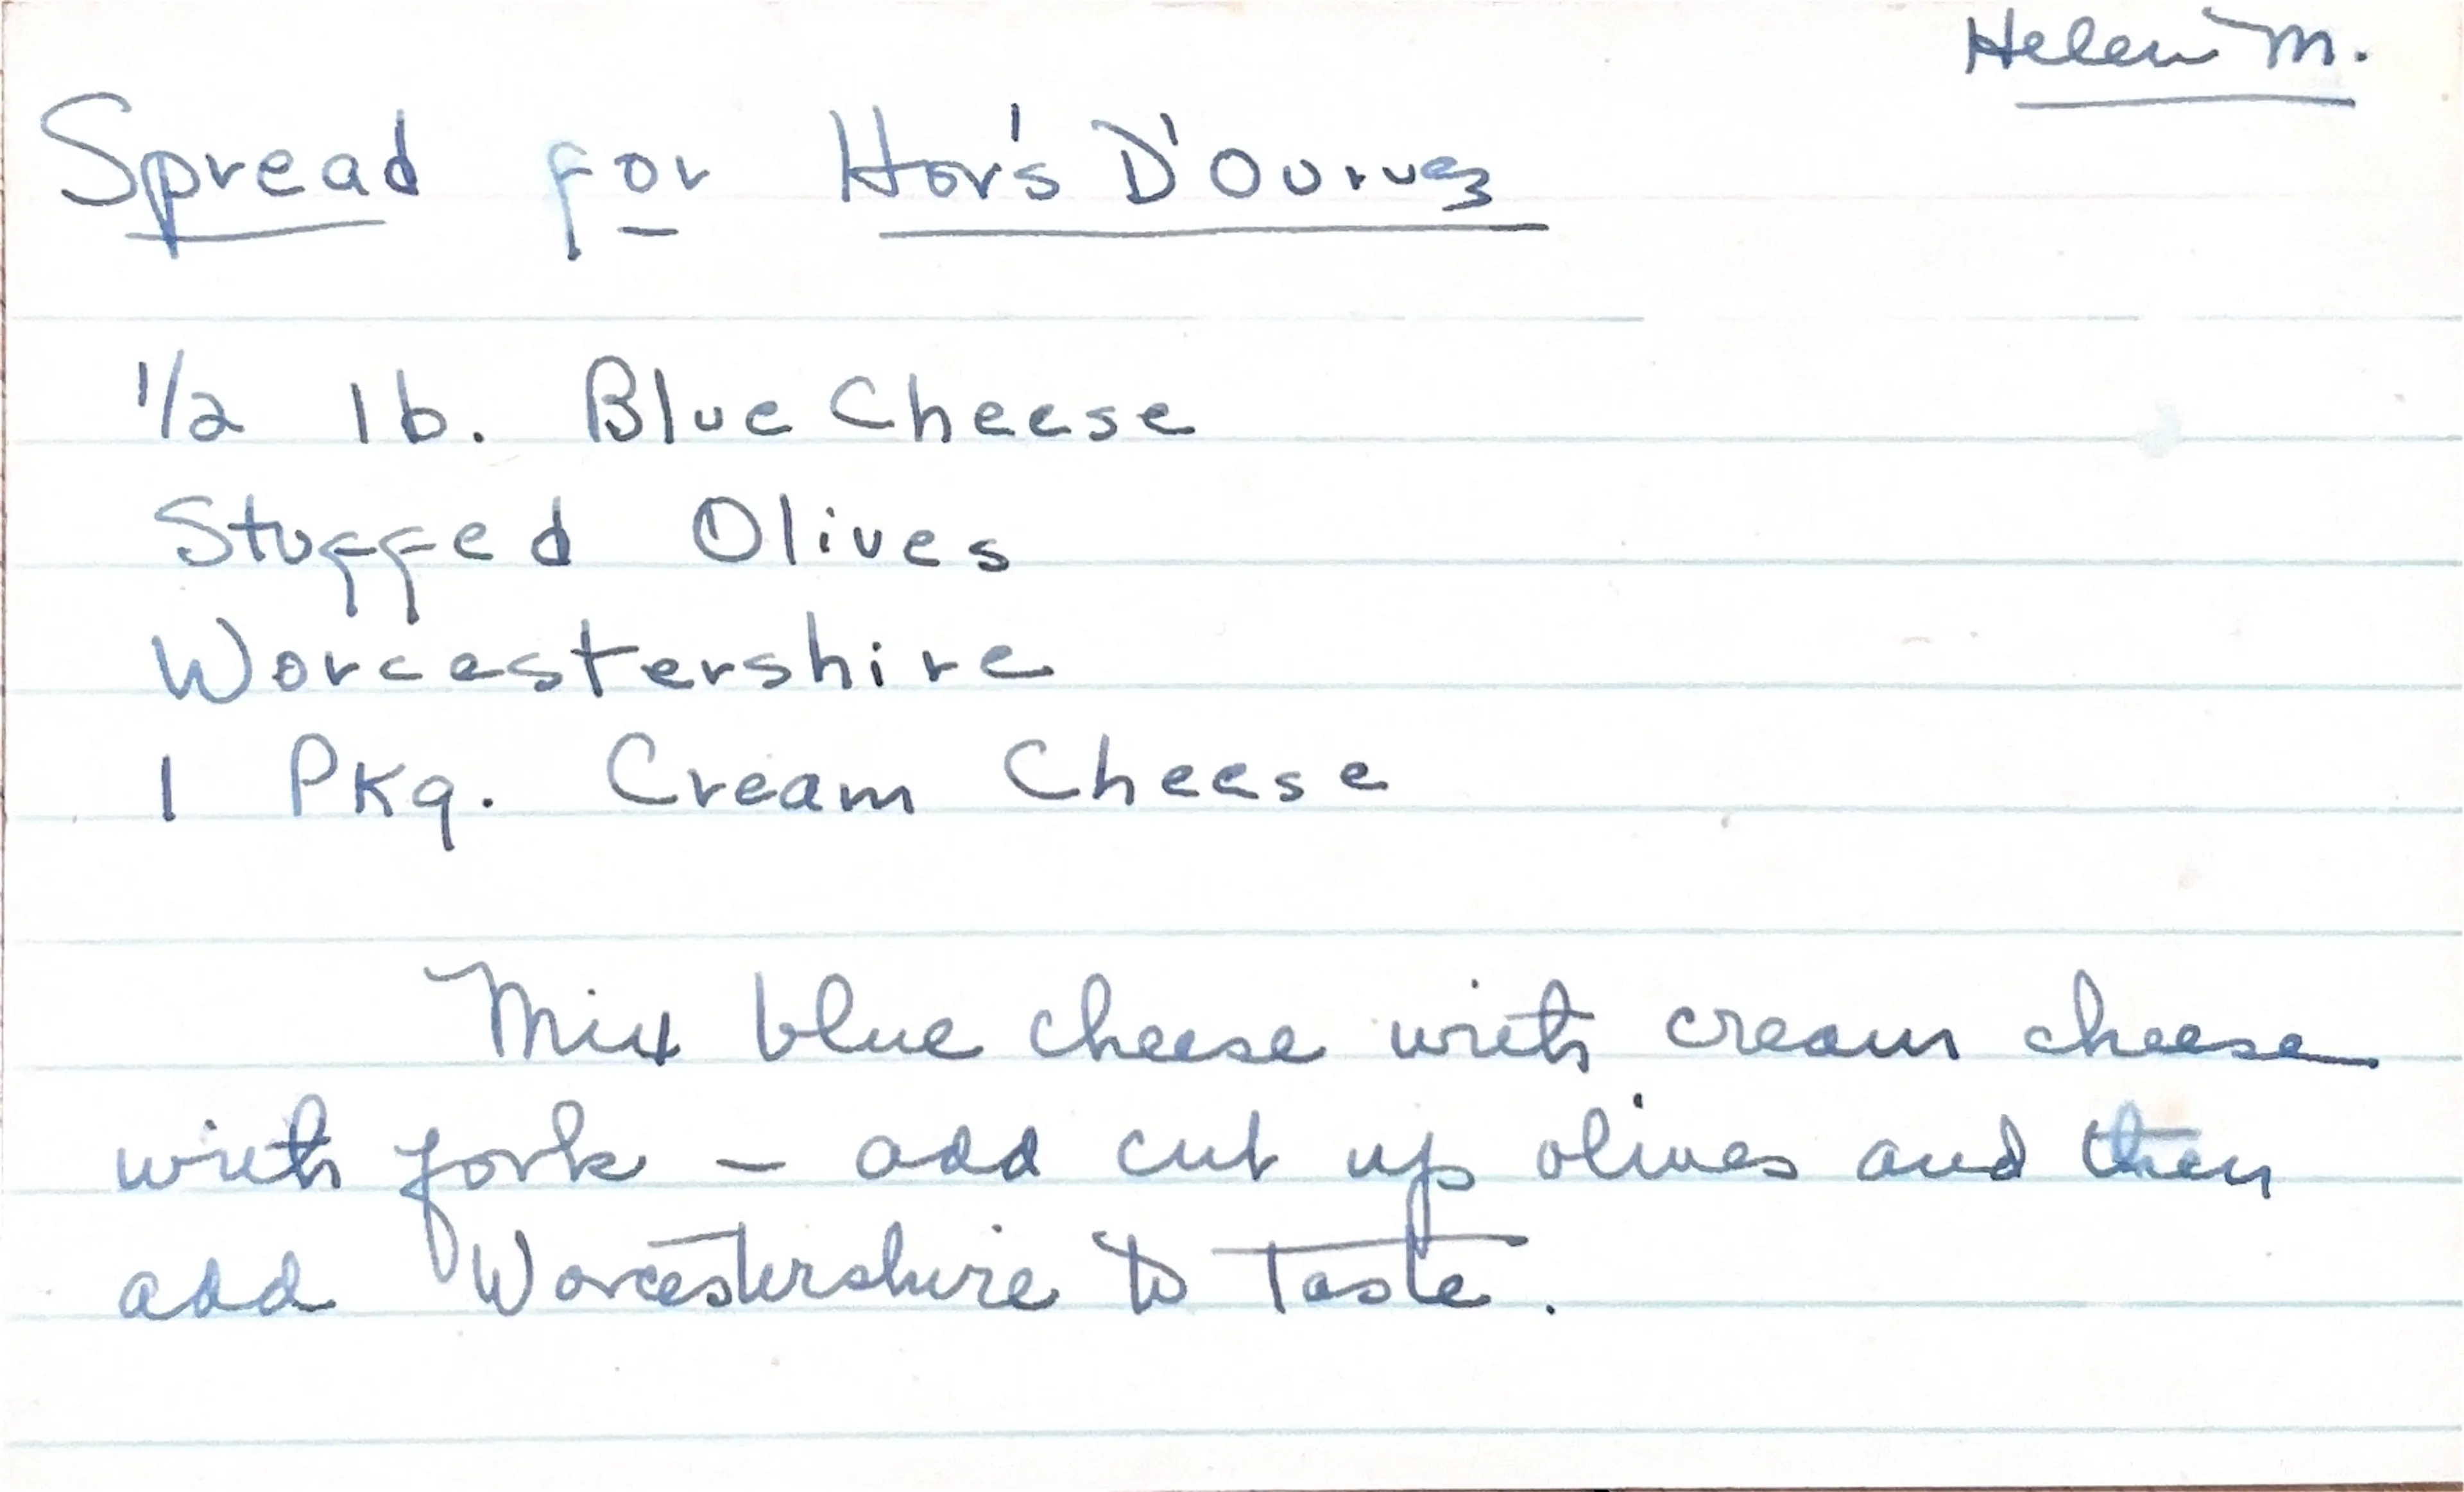 Helen M.
Spread for Hor's D'Ourves
1/2 lb. Blue Cheese
Stuffed Olives
Worcestershire
1 Pkg. Cream Cheese
Mix blue cheese with cream cheese
with fork - add cut up olives and then
add Worcestershire to taste.